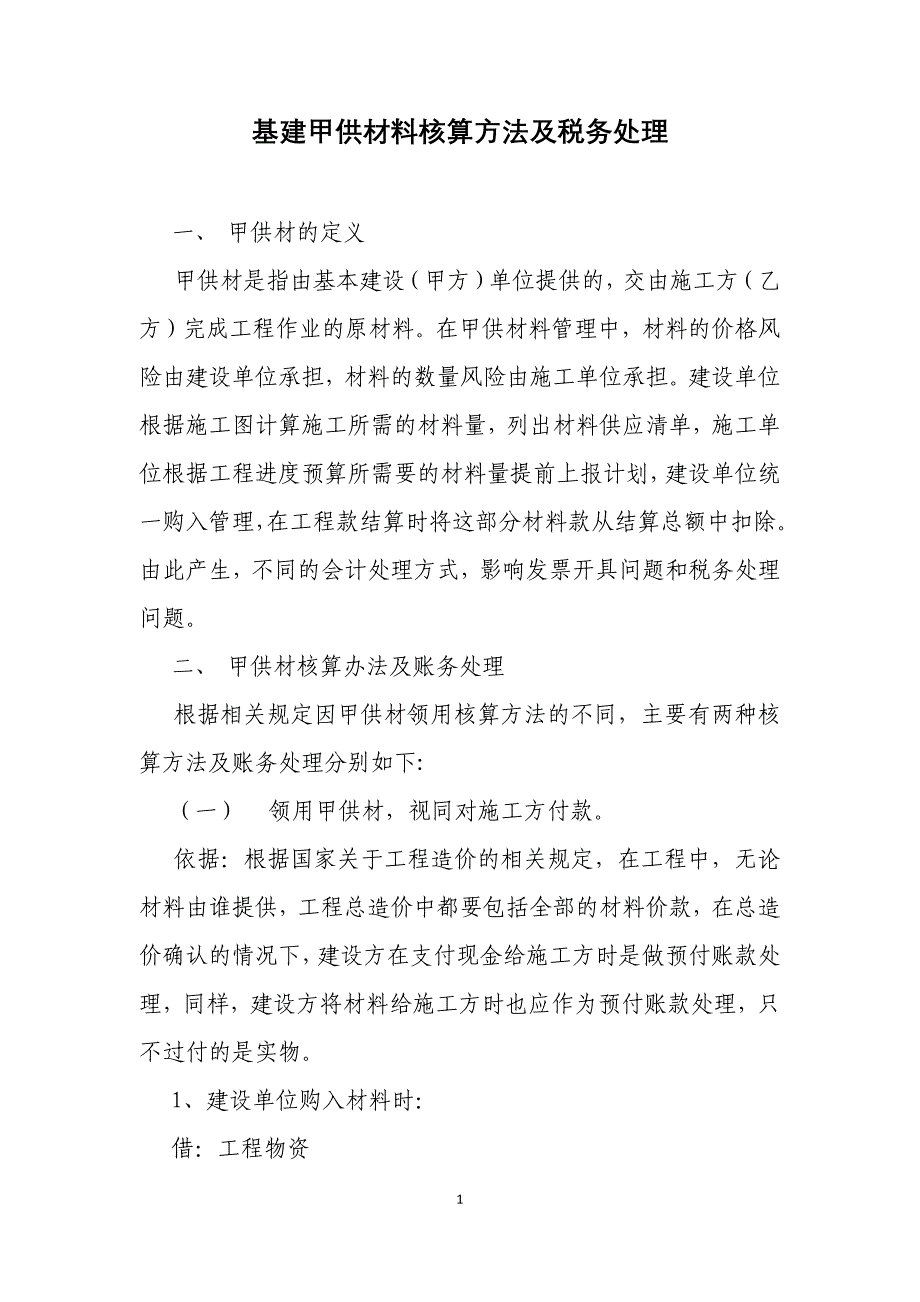 基建甲供材料核算方法及税务处理
一、 甲供材的定义
甲供材是指由基本建设(甲方)单位提供的，交由施工方(乙
方)完成工程作业的原材料。在甲供材料管理中，材料的价格风
险由建设单位承担，材料的数量风险由施工单位承担。建设单位
根据施工图计算施工所需的材料量，列出材料供应清单，施工单
位根据工程进度预算所需要的材料量提前上报计划，建设单位统
一购入管理，在工程款结算时将这部分材料款从结算总额中扣除。
由此产生，不同的会计处理方式，影响发票开具问题和税务处理
问题。
二、 甲供材核算办法及账务处理
根据相关规定因甲供材领用核算方法的不同，主要有两种核
算方法及账务处理分别如下：
(一) 领用甲供材，视同对施工方付款。
依据：根据国家关于工程造价的相关规定，在工程中，无论
材料由谁提供，工程总造价中都要包括全部的材料价款，在总造
价确认的情况下，建设方在支付现金给施工方时是做预付账款处
理，同样，建设方将材料给施工方时也应作为预付账款处理，只
不过付的是实物。
1、建设单位购入材料时：
借：工程物资
1